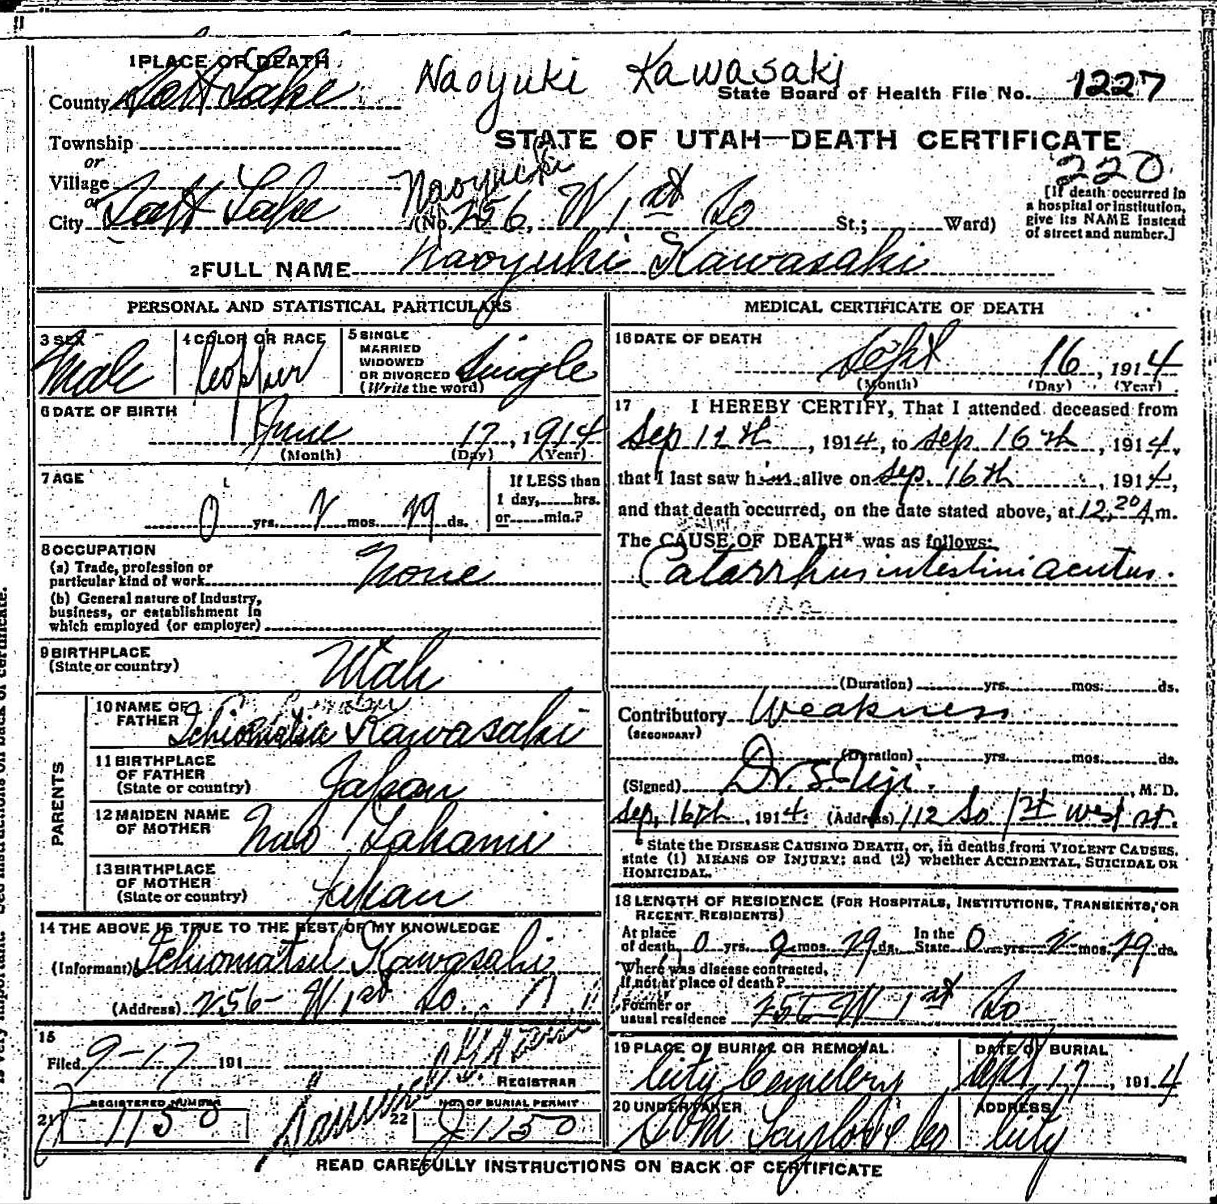 1 PLACE OF DEATH
Naoyuki Kawasaki
County Salt Lake
State Board of Health File No. 1227
Township
STATE OF UTAH—DEATH CERTIFICATE
or
220
Village
Naoyuki
or
City Salt Lake
(No. 256, W 1st So St.; Ward)
[If death occurred in
a hospital or institution,
give its NAME instead
of street and number.]
2 FULL NAME Naoyuki Kawasaki
PERSONAL AND STATISTICAL PARTICULARS
3 SEX
Male
4 COLOR OR RACE
Copper
5 SINGLE
MARRIED
WIDOWED
OR DIVORCED
(Write the word)
Single
6 DATE OF BIRTH
June 17, 1914
(Month) (Day) (Year)
7 AGE
0 yrs. 2 mos. 29 ds.
If LESS than
1 day, hrs.
or min.?
8 OCCUPATION
(a) Trade, profession or
particular kind of work None
(b) General nature of industry,
business, or establishment in
which employed (or employer)
9 BIRTHPLACE
(State or country) Utah
PARENTS
10 NAME OF
FATHER Kawasaki
11 BIRTHPLACE
OF FATHER
(State or country) Japan
12 MAIDEN NAME
OF MOTHER
13 BIRTHPLACE
OF MOTHER
(State or country) Japan
14 THE ABOVE IS TRUE TO THE BEST OF MY KNOWLEDGE
(Informant) Kawasaki
(Address) 256- W 1st So.
15
Filed 9-17 191
REGISTRAR
21 REGISTERED NUMBER
1150
22 NO. OF BURIAL PERMIT
J1150
MEDICAL CERTIFICATE OF DEATH
16 DATE OF DEATH
Sept 16, 1914
(Month) (Day) (Year)
17 I HEREBY CERTIFY, That I attended deceased from
Sep 12th, 1914, to Sep. 16th, 1914,
that I last saw him alive on Sep. 16th, 1914,
and that death occurred, on the date stated above, at 12.20 A m.
The CAUSE OF DEATH* was as follows:
Catarrhus intestini acutus.
(Duration) yrs. mos. ds.
Contributory Weakness
(SECONDARY)
(Duration) yrs. mos. ds.
(Signed) Dr. S. , M. D.
Sep, 16th, 1914. (Address) 112 So 1st west st.
* State the DISEASE CAUSING DEATH, or, in deaths from VIOLENT CAUSES,
state (1) MEANS OF INJURY; and (2) whether ACCIDENTAL, SUICIDAL OR
HOMICIDAL.
18 LENGTH OF RESIDENCE (FOR HOSPITALS, INSTITUTIONS, TRANSIENTS, OR
RECENT RESIDENTS)
At place
of death 0 yrs. 2 mos. 29 ds. In the
State 0 yrs 2 mos. 29 ds.
Where was disease contracted,
If not at place of death?
Former or
usual residence 256 W 1st So
19 PLACE OF BURIAL OR REMOVAL
City Cemetery
DATE OF BURIAL
Sept 17, 1914
20 UNDERTAKER
S M Taylor & Co
ADDRESS
City
READ CAREFULLY INSTRUCTIONS ON BACK OF CERTIFICATE